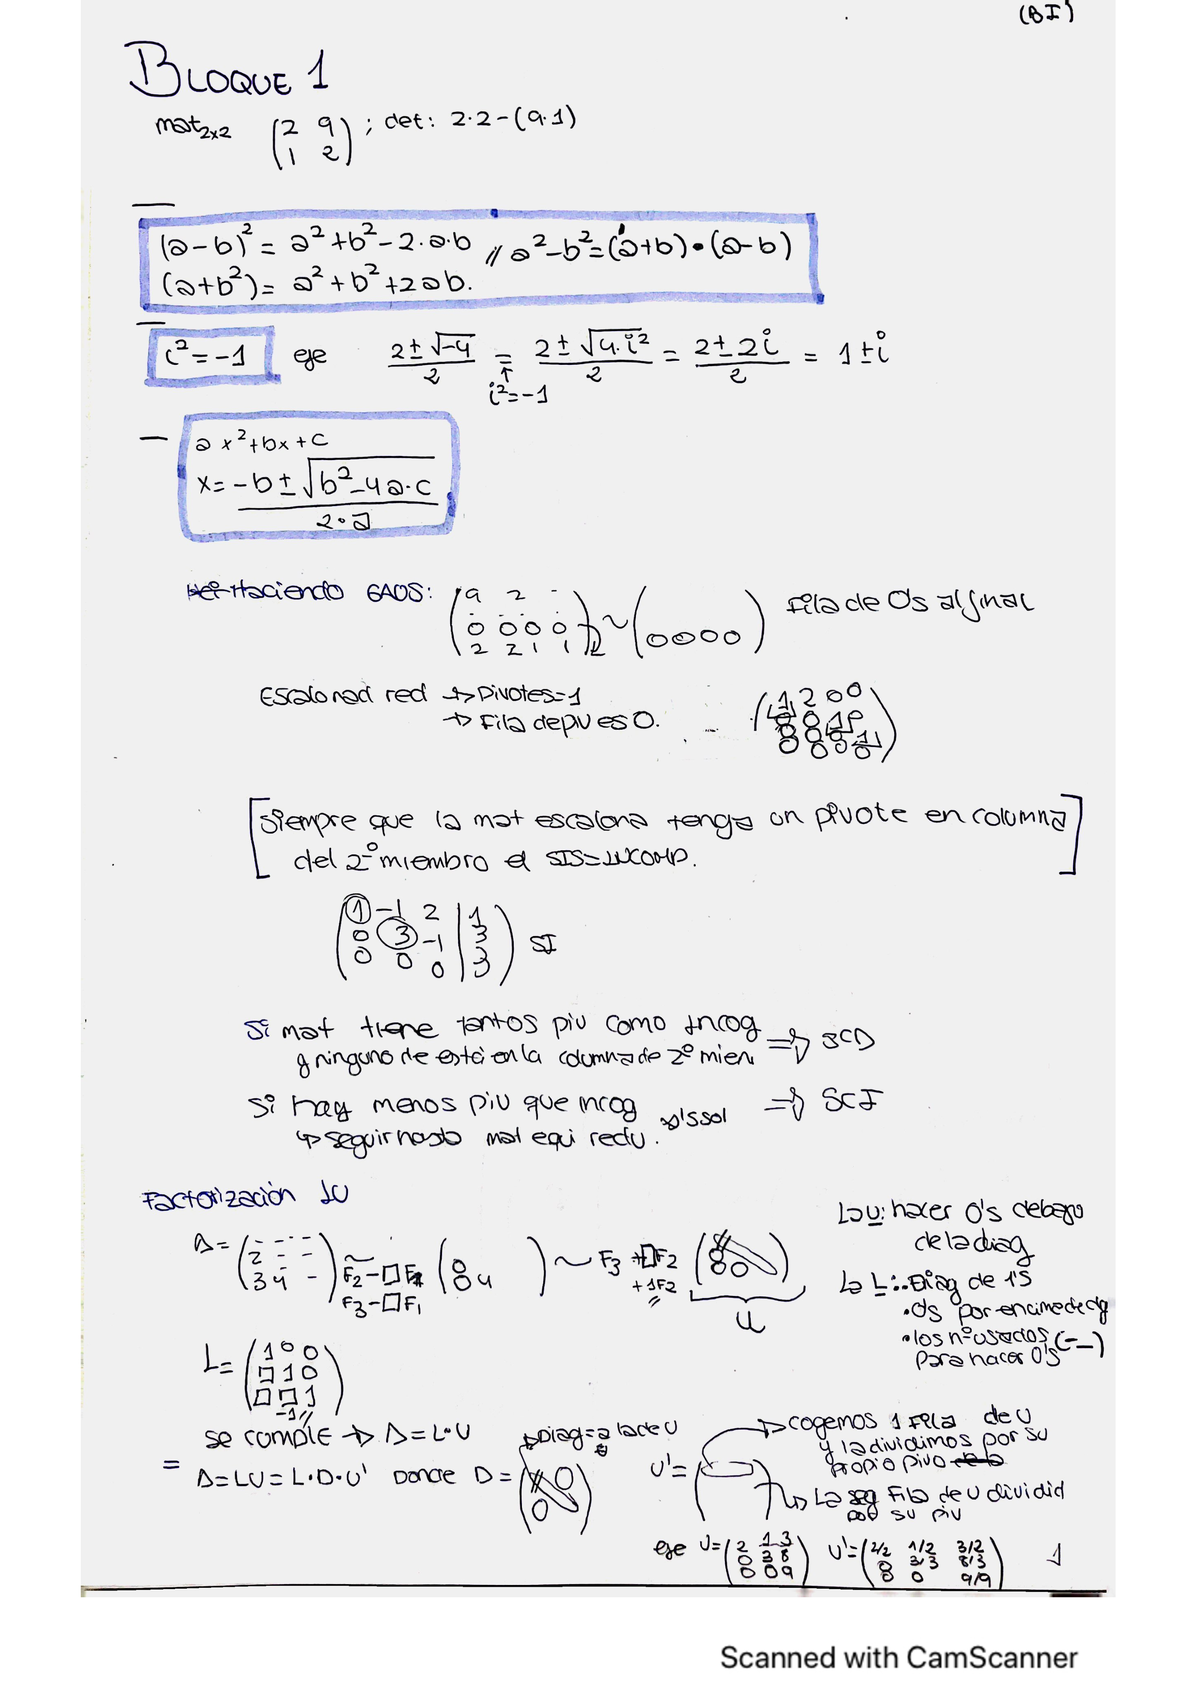 (BI)
BLOQUE 1
mat2x2 (2 9 ; 1 2) ; det: 2·2-(9·1)
(a-b)² = a²+b²-2·a·b // a²-b²=(a+b)·(a-b)
(a+b²)= a²+b²+2ab.
i²=-1 eje (2±√-4)/2 = (2±√4·i²)/2 = (2±2i)/2 = 1±i
i²=-1
ax²+bx+c
x= (-b±√b²-4a·c)/(2·a)
Haciendo GAOS: (9 2 - ; 0 0 0 0 ; 2 2 1 1 2) ~ (0000) Fila de 0s al final
Escalonad red → Pivotes=1
→ Fila de piv es 0.
(1 2 0 0
0 0 1 0
0 0 0 1
0 0 0 0)
[Siempre que la mat escalona tenga un pivote en columna
del 2º miembro el SIS=INCOMP.]
(1 -1 2 | 1
0 3 -1 | 3
0 0 0 | 3) SI
Si mat tiene tantos piv como Incog
y ninguno de está en la columna de 2º miem ⇒ SCD
Si hay menos piv que incog ⇒ SCI
↳ seguir hasta mat equi redu.
Factorización LU
A= (- - - - ; 2 - - ; 3 4 -) ~ (0 ; 0 4) ~ F3 +□F2 (0 ; 0 0)
F2-□F1
F3-□F1
+1F2
U
↳ U: hacer 0's debajo
de la diag
↳ L: Diag de 1's
•0s por encima de dg
•los nº usados (-)
para hacer 0's
L= (1 0 0
□ 1 0
□ □ 1)
-1//
se comple → A=L·U
= A=LU=L·D·U' Donde D=
Diag=a la de U
U'=
→ cogemos 1 fila de U
y la dividimos por su
propio pivo
↳ La seg Fila de U dividid
por su piv
eje U=(2 1 3 ; 0 3 8 ; 0 0 9) U'=(2/2 1/2 3/2 ; 0 3/3 8/3 ; 0 0 9/9) 1
Scanned with CamScanner